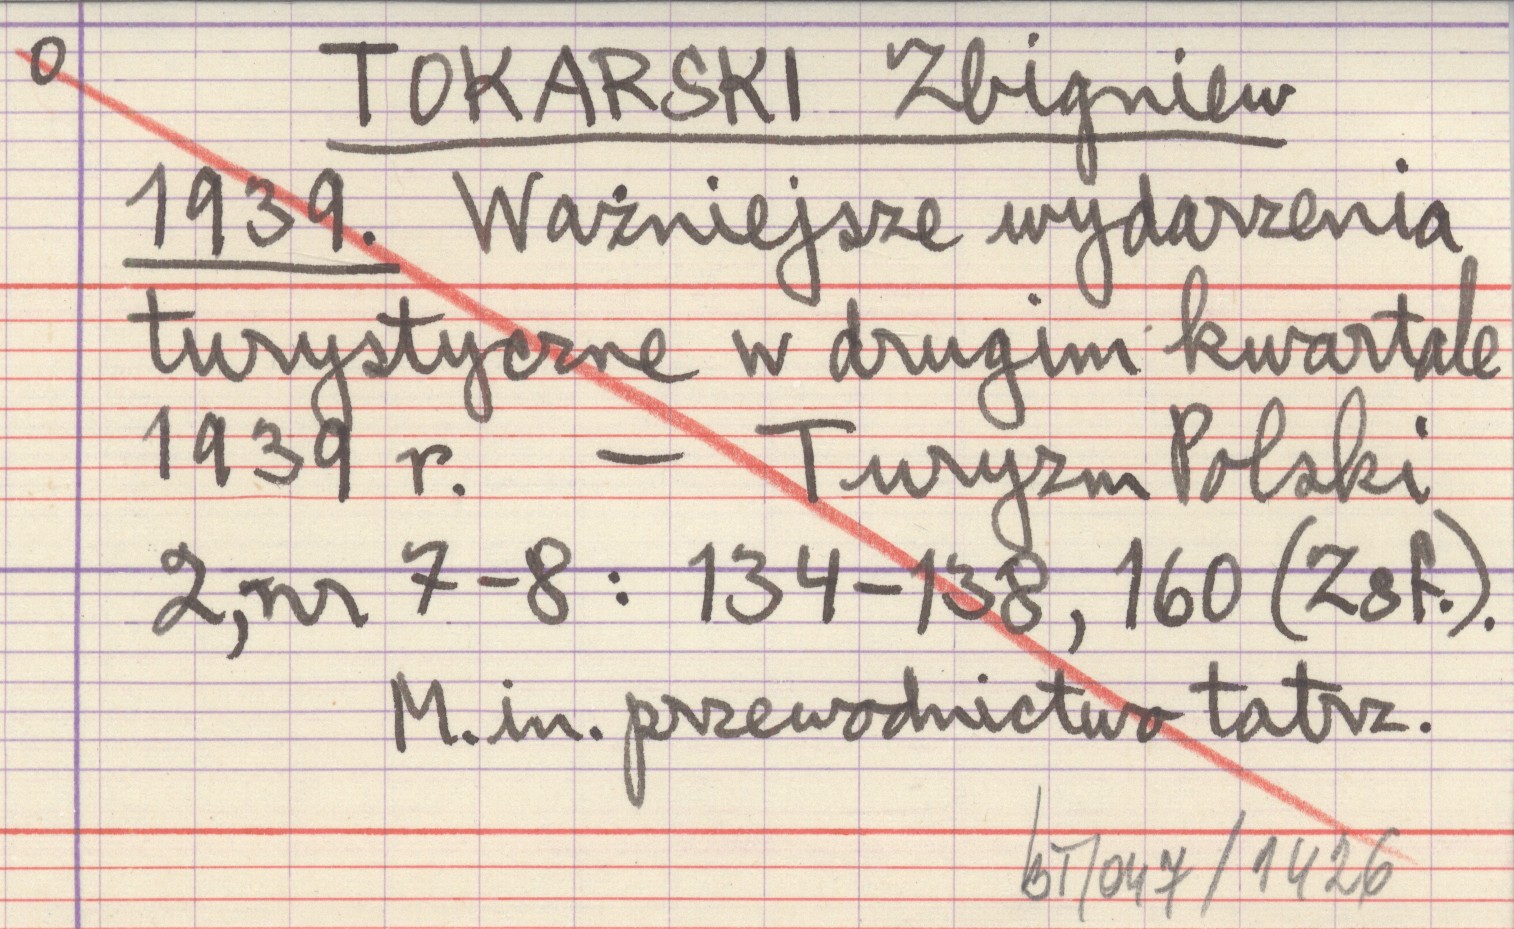 0 TOKARSKI Zbigniew
1939. Ważniejsze wydarzenia
turystyczne w drugim kwartale
1939 r. — Turyzm Polski
2, nr 7-8: 134-138, 160 (Zsf.).
M.in. przewodnictwo tatrz.
bT/047/1426